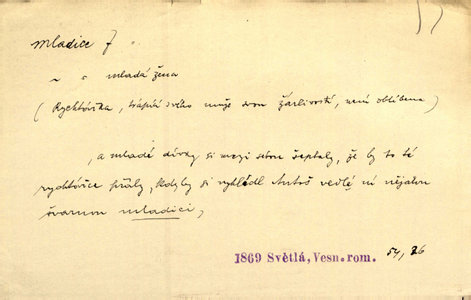 mladice f
~ = mladá žena
(Rychtářka, trápíc svého muže svou žárlivostí, není oblíbena)
, a mladé dívky si mezi sebou šeptaly, že by to té
rychtářce přály, kdyby si vyhlédl Antoš vedle ní nějakou
švarnou mladici,
1869 Světlá, Vesn. rom. 54, 26